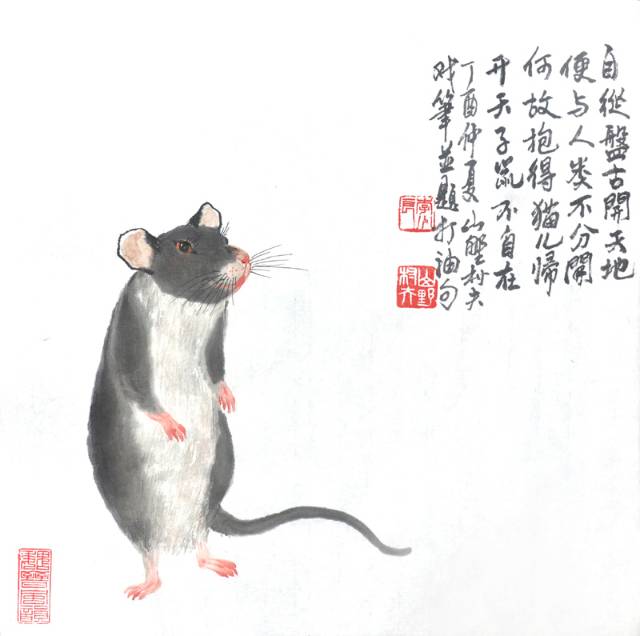 自從盤古開天地
便与人类不分開
何故抱得猫儿歸
开天子鼠不自在
丁酉仲夏山埜村夫
戏筆並題打油句
山野村夫